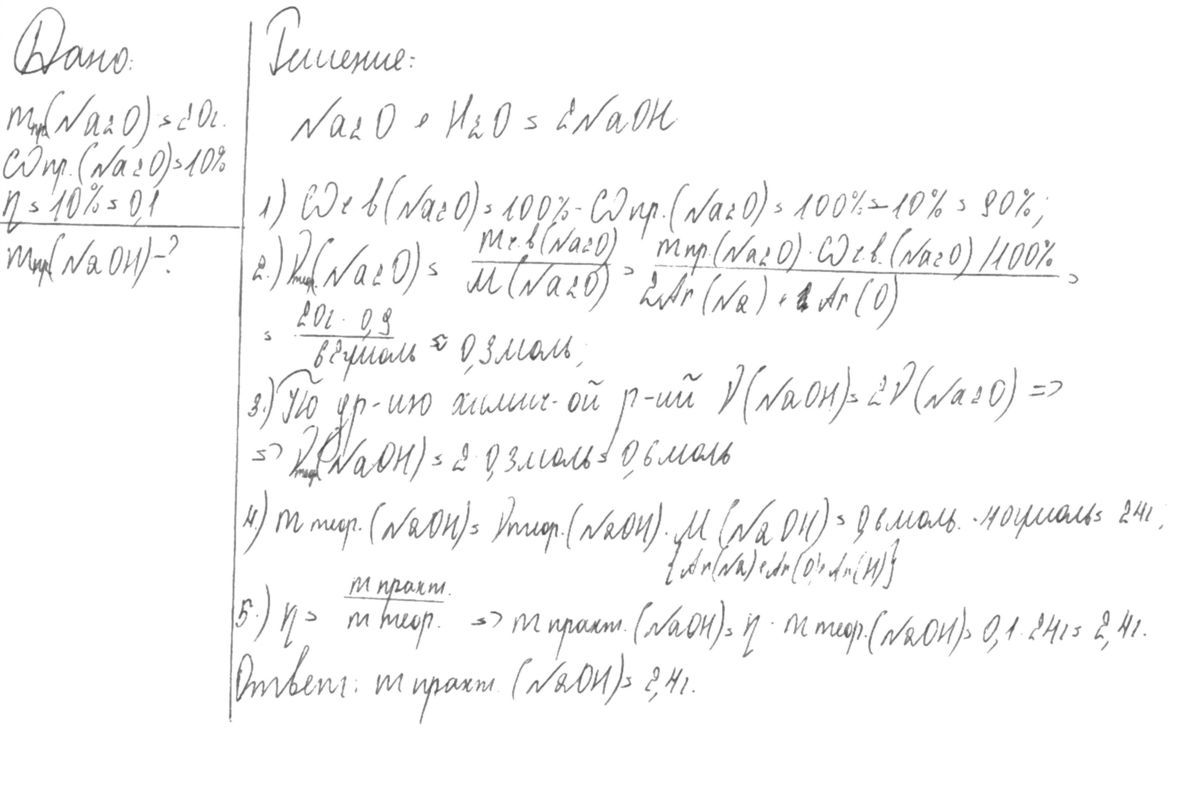 Дано:
mпр(Na2O) = 20г.
ωпр.(Na2O) = 10%
η = 10% = 0,1
mпр(NaOH) - ?
Решение:
Na2O + H2O = 2NaOH
1) ωч.в(Na2O) = 100% - ωпр.(Na2O) = 100% - 10% = 90%;
2.) νтеор.(Na2O) = mч.в(Na2O) / M(Na2O) = mпр.(Na2O) · ωч.в.(Na2O) /100% / 2Ar(Na) + 1Ar(O) =
= 20г · 0,9 / 62г/моль ≈ 0,3моль;
3.) По ур-ию химич-ой р-ий ν(NaOH) = 2ν(Na2O) =>
=> νтеор(NaOH) = 2 · 0,3моль = 0,6моль
4.) mтеор.(NaOH) = νтеор.(NaOH) · M(NaOH) = 0,6моль · 40г/моль = 24г;
{Ar(Na)+Ar(O)+Ar(H)}
5.) η = mпракт. / mтеор. => mпракт.(NaOH) = η · mтеор.(NaOH) = 0,1 · 24г = 2,4г.
Ответ: mпракт.(NaOH) = 2,4г.